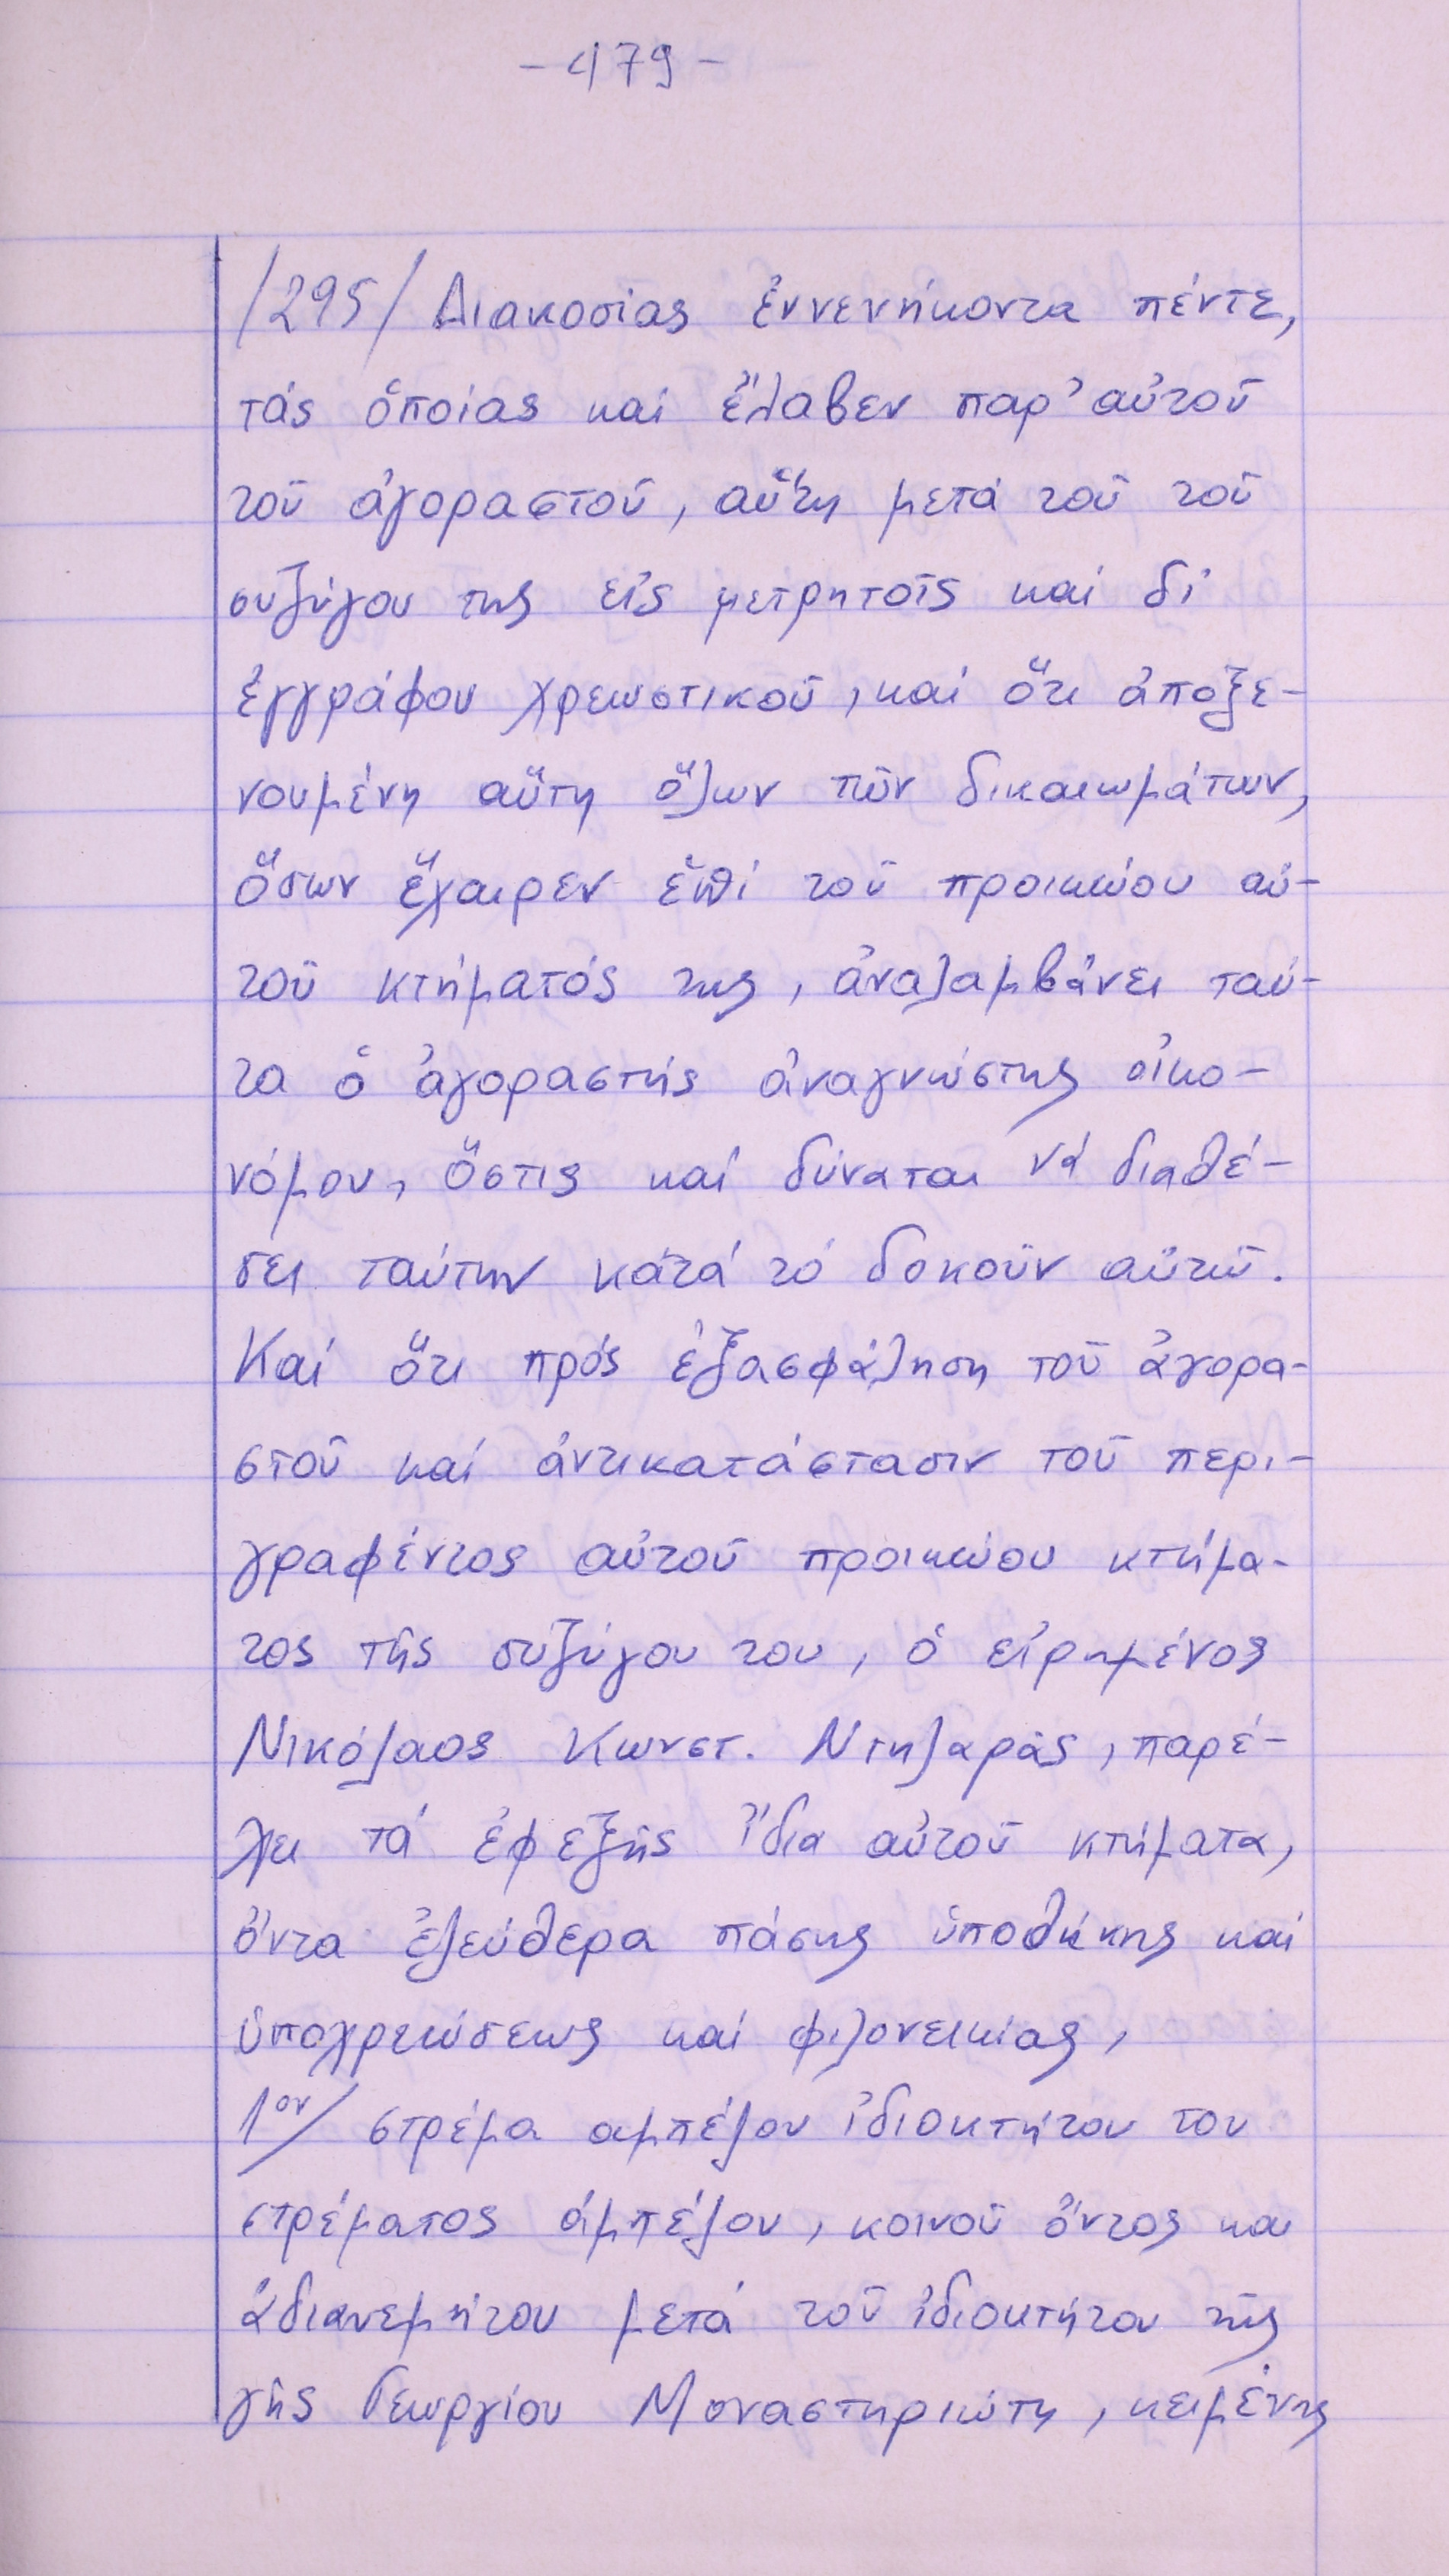 - 479 -
/295/ Διακοσίας ἐννενήκοντα πέντε,
τάς ὁποίας καί ἔλαβεν παρ' αὐτοῦ
τοῦ ἀγοραστοῦ, αὕτη μετά τοῦ τοῦ
συζύγου της εἰς μετρητοῖς καί δι'
ἐγγράφου χρεωστικοῦ, καί ὅτι ἀποξε-
νουμένη αὕτη ὅλων τῶν δικαιωμάτων,
ὅσων ἔχαιρεν ἐπί τοῦ προικώου αὐ-
τοῦ κτήματός της, ἀναλαμβάνει ταύ-
τα ὁ ἀγοραστής ἀναγνώστης οἰκο-
νόμου, ὅστις καί δύναται νά διαθέ-
σει ταύτην κατά τό δοκοῦν αὐτῷ.
Καί ὅτι πρός ἐξασφάληση τοῦ ἀγορα-
στοῦ καί ἀντικατάστασιν τοῦ περι-
γραφέντος αὐτοῦ προικώου κτήμα-
τος τῆς συζύγου του, ὁ εἰρημένος
Νικόλαος Κωνστ. Ντηλαράς, παρέ-
χει τά ἐφεξῆς ἴδια αὐτοῦ κτήματα,
ὄντα ἐλεύθερα πάσης ὑποθήκης καί
ὑποχρεώσεως καί φιλονεικίας,
1ον/ στρέμα αμπέλου ἰδιοκτήτου του
στρέματος ἀμπέλου, κοινοῦ ὄντος και
ἀδιανεμήτου μετά τοῦ ἰδιοκτήτου τῆς
γῆς Γεωργίου Μοναστηριώτη, κειμένης